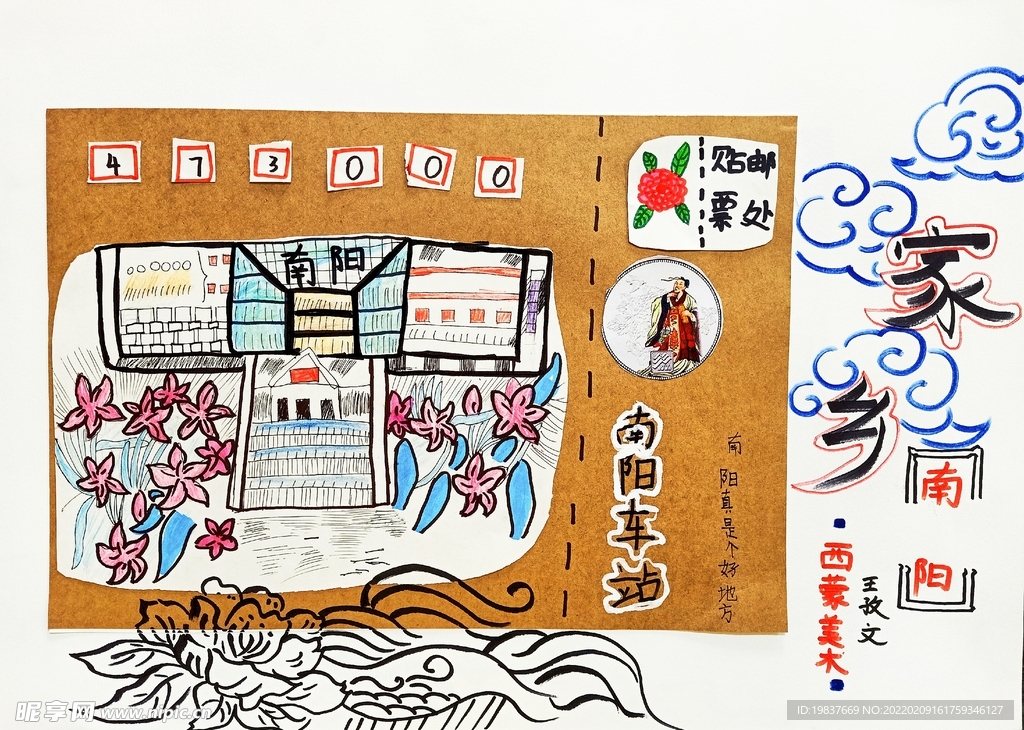 473000
贴邮
票处
南阳
南阳车站
南阳真是个好地方
家乡
南阳
西蒙美术
王孜文
昵享网 www.nipic.cn
ID:19837669 NO:20220209161759346127